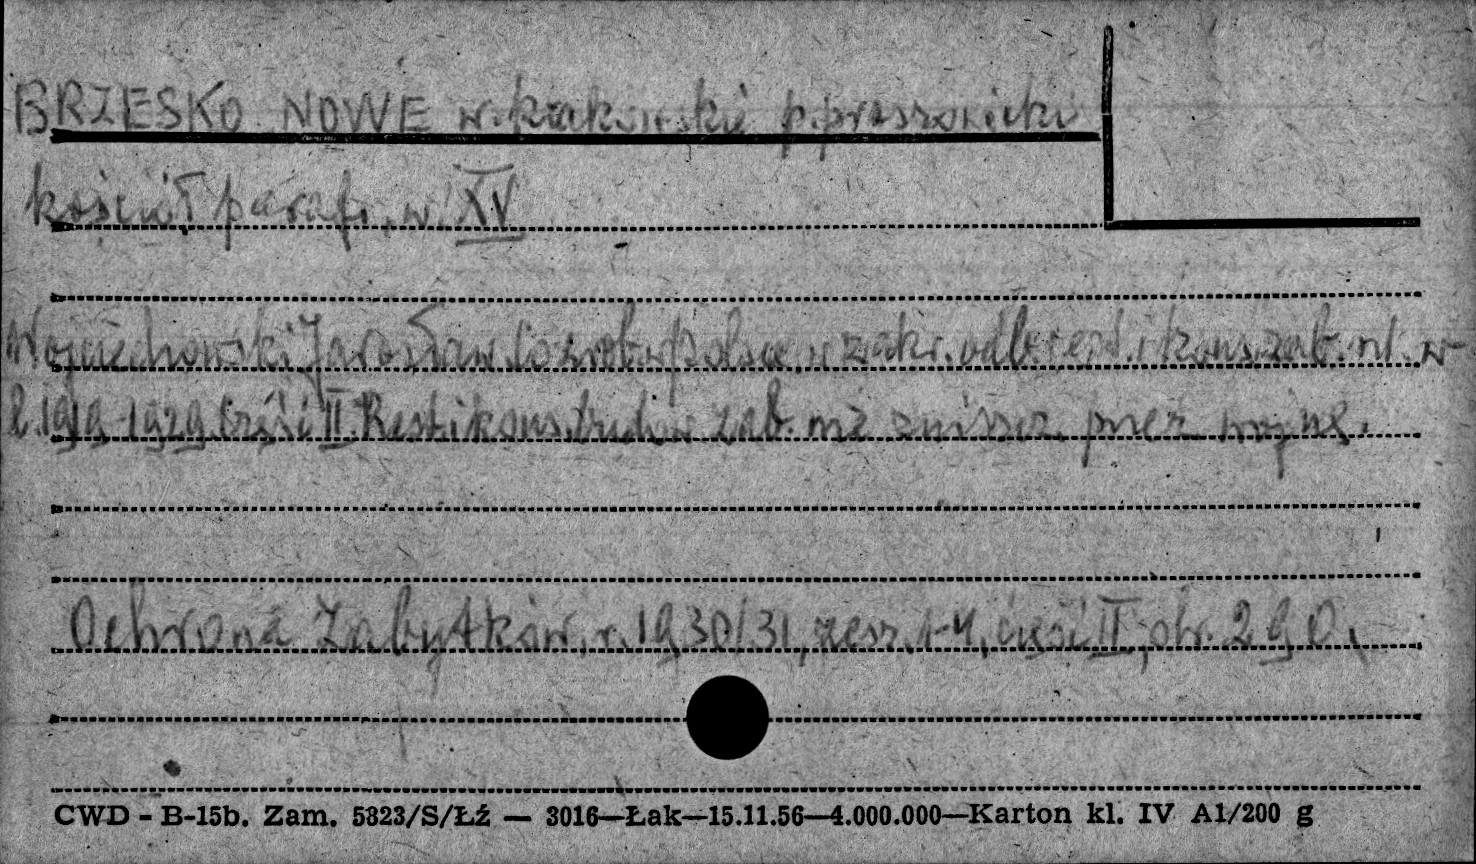 BRZESKO NOWE w. krakowskie p. proszowicki
kościół paraf. w. XV
Wojciechowski Jarosław. Co zrob. w Polsce w zakr. odb. rest. i kons. zab. nt. w
l. 1919-1929 część II. Rest. i kons. budow. zab. nie zniszcz. przez wojnę.
Ochrona Zabytków, r. 1930/31, zesz. 1-4, część II, str. 290.
CWD - B-15b. Zam. 5323/S/Łź — 3016—Łak—15.11.56—4.000.000—Karton kl. IV A1/200 g